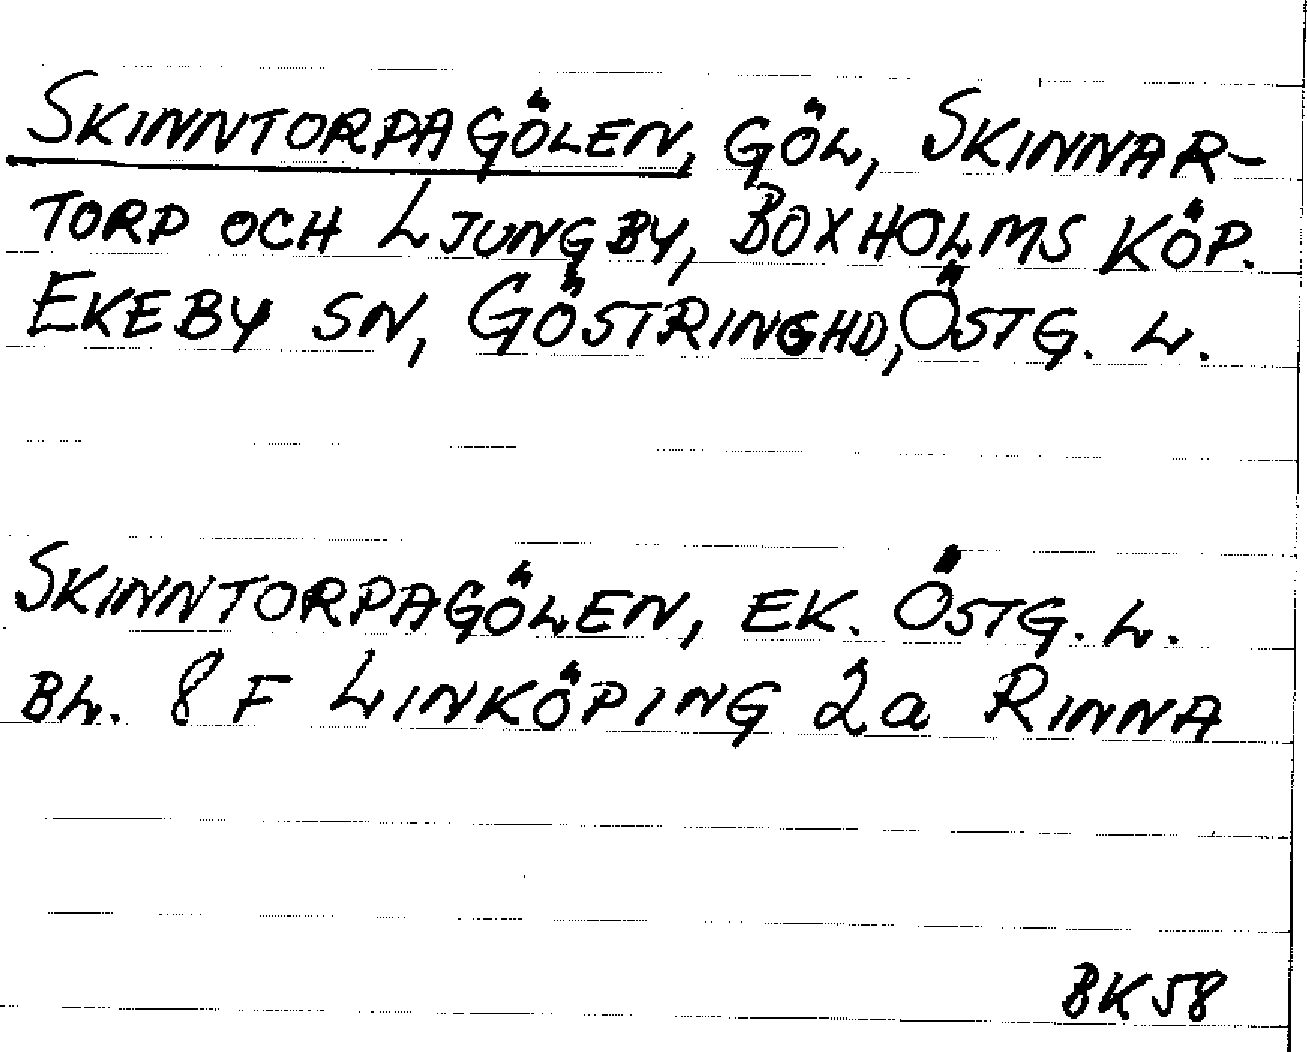 SKINNTORPAGÖLEN, GÖL, SKINNAR-
TORP OCH LJUNGBY, BOXHOLMS KÖP.
EKEBY SN, GÖSTRINGHD, ÖSTG. L.
SKINNTORPAGÖLEN, EK. ÖSTG. L.
BL. 8 F LINKÖPING 2a RINNA
BK58